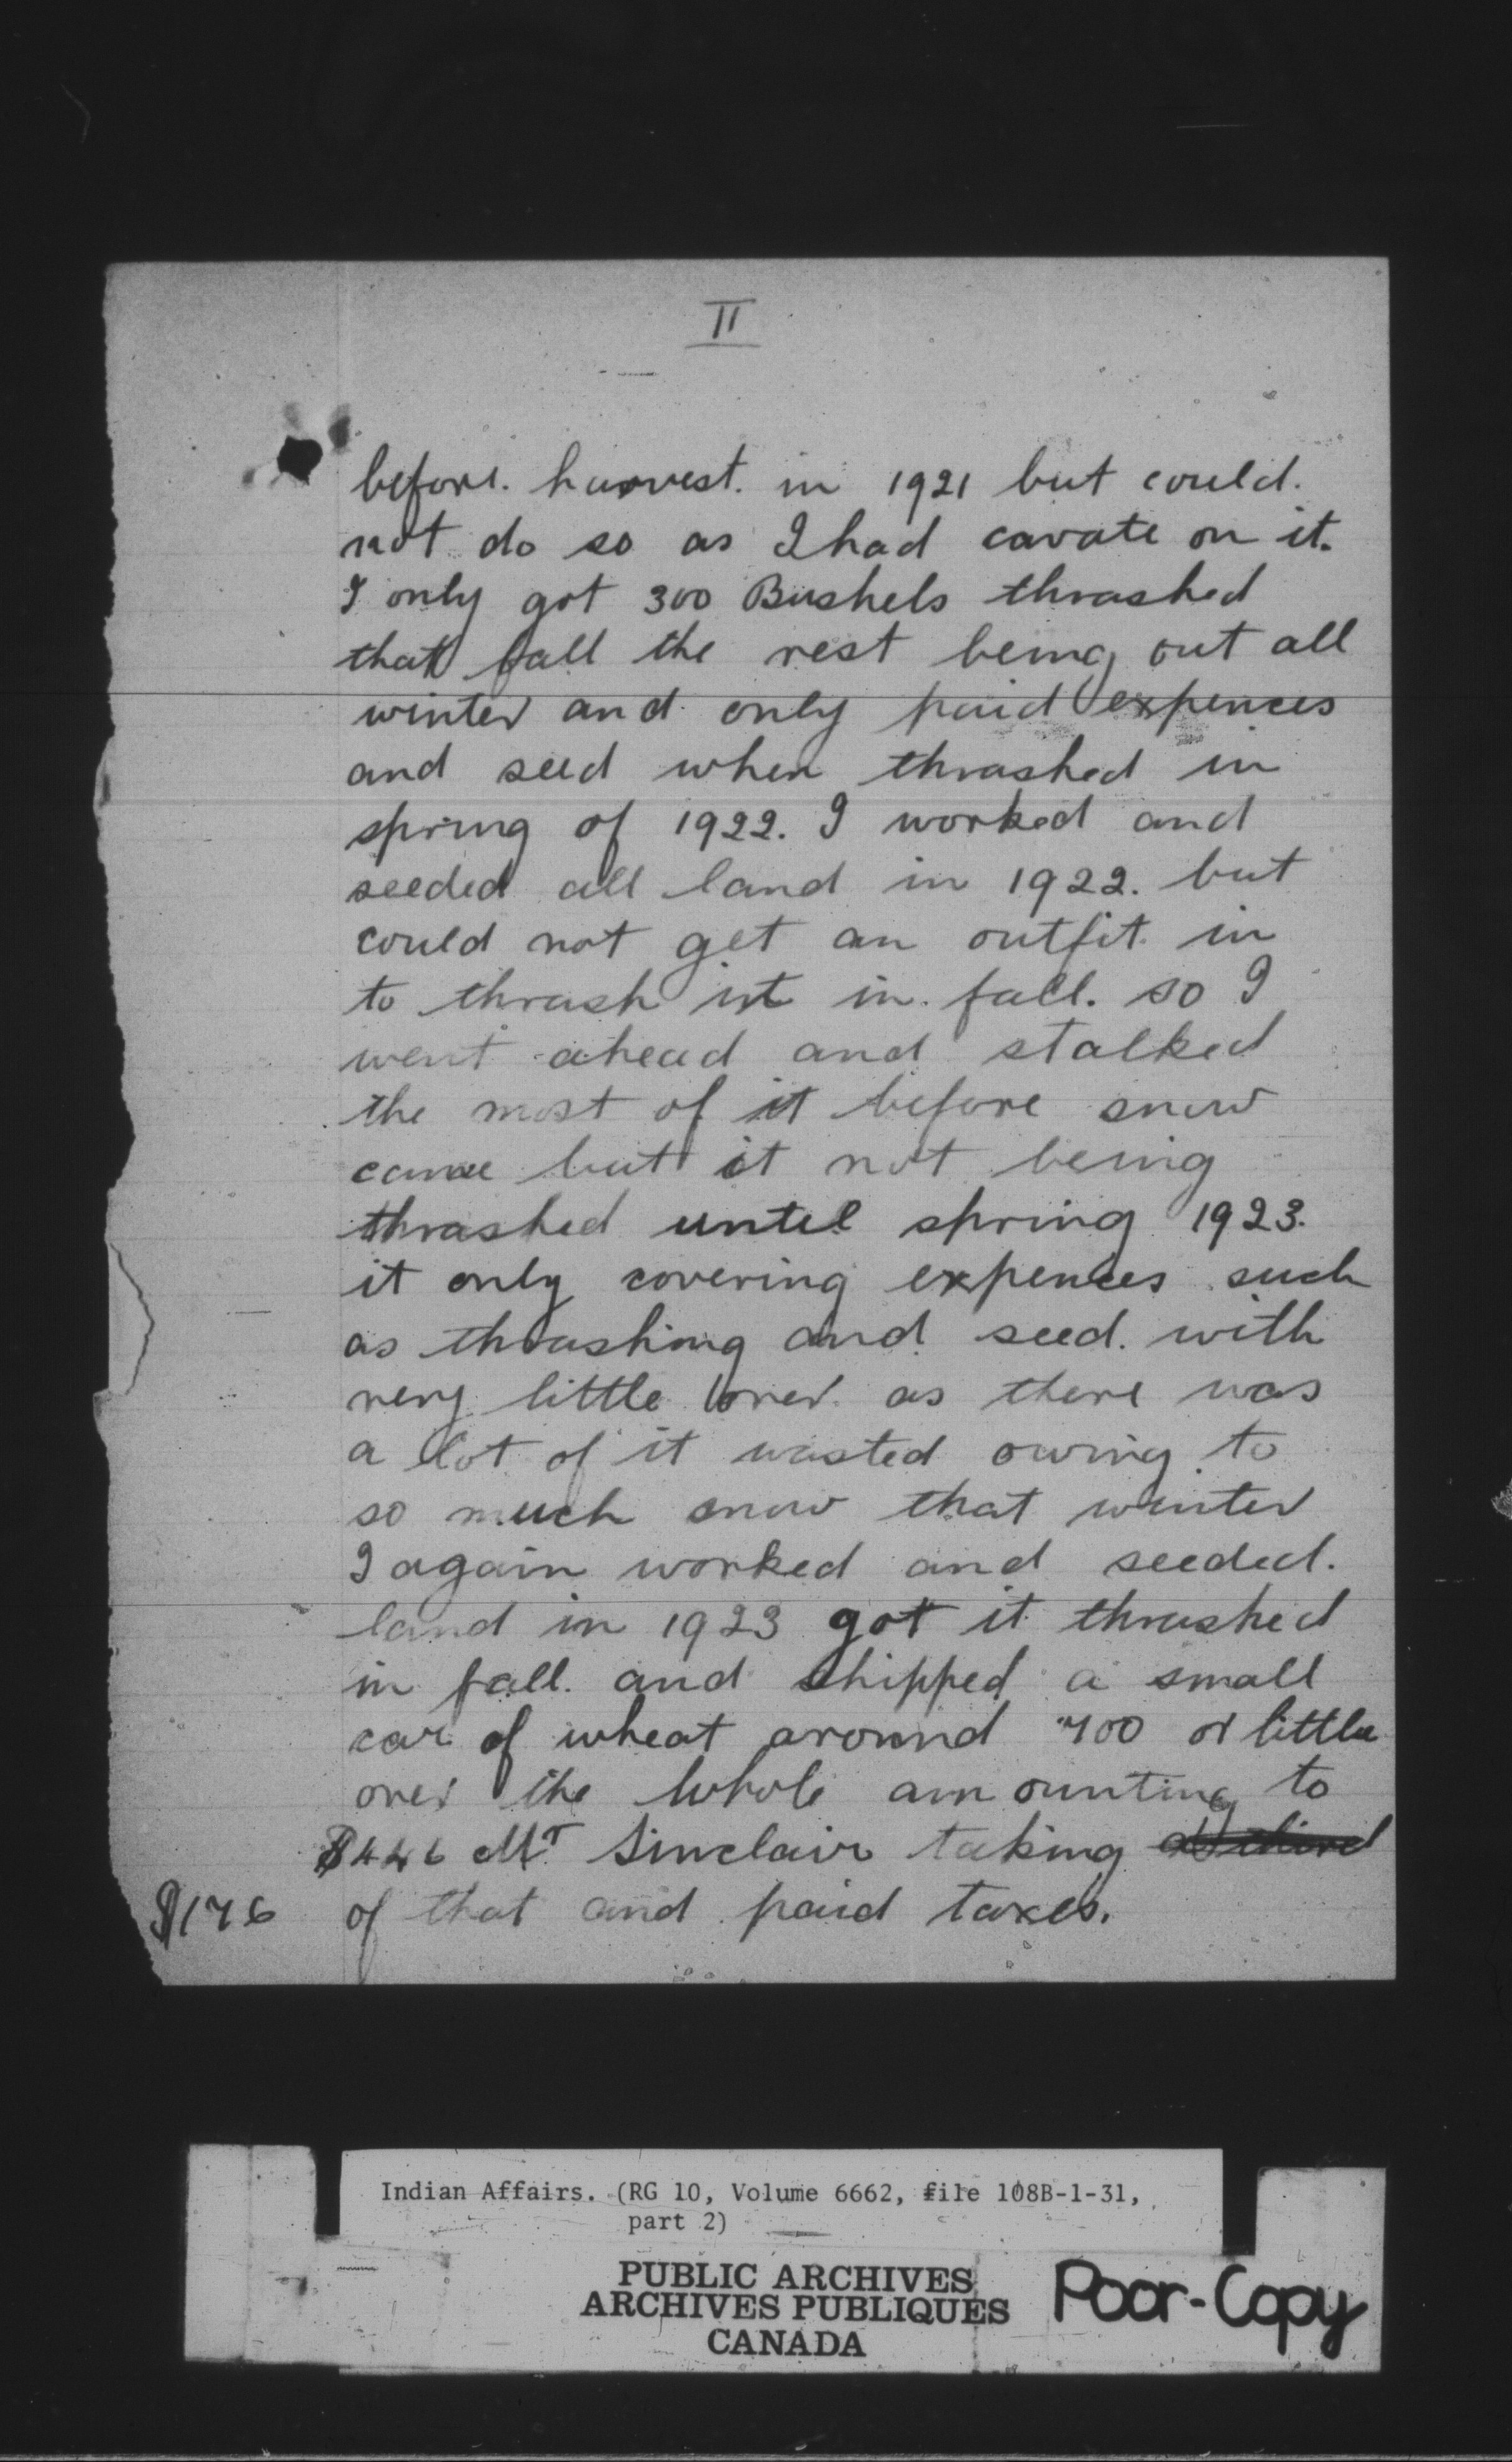 II
before. harvest. in 1921 but could.
not do so as I had cavate on it.
I only got 300 Bushels thrashed
that fall the rest being out all
winter and only paid expences
and seed when thrashed in
spring of 1922. I worked and
seeded all land in 1922. but
could not get an outfit in
to thrash it in. fall. so I
went ahead and stalked
the most of it before snow
came but it not being
thrashed until spring 1923.
it only covering expences such
as thrashing and seed. with
very little over. as there was
a lot of it wasted owing to
so much snow that winter
I again worked and seeded.
land in 1923 got it thrashed
in fall. and shipped a small
car of wheat around 700 or little
over the whole amounting to
$446 Mr Sinclair taking
$176 of that and paid taxes.
Indian Affairs. (RG 10, Volume 6662, file 108B-1-31,
part 2)
PUBLIC ARCHIVES
ARCHIVES PUBLIQUES
CANADA
Poor-Copy